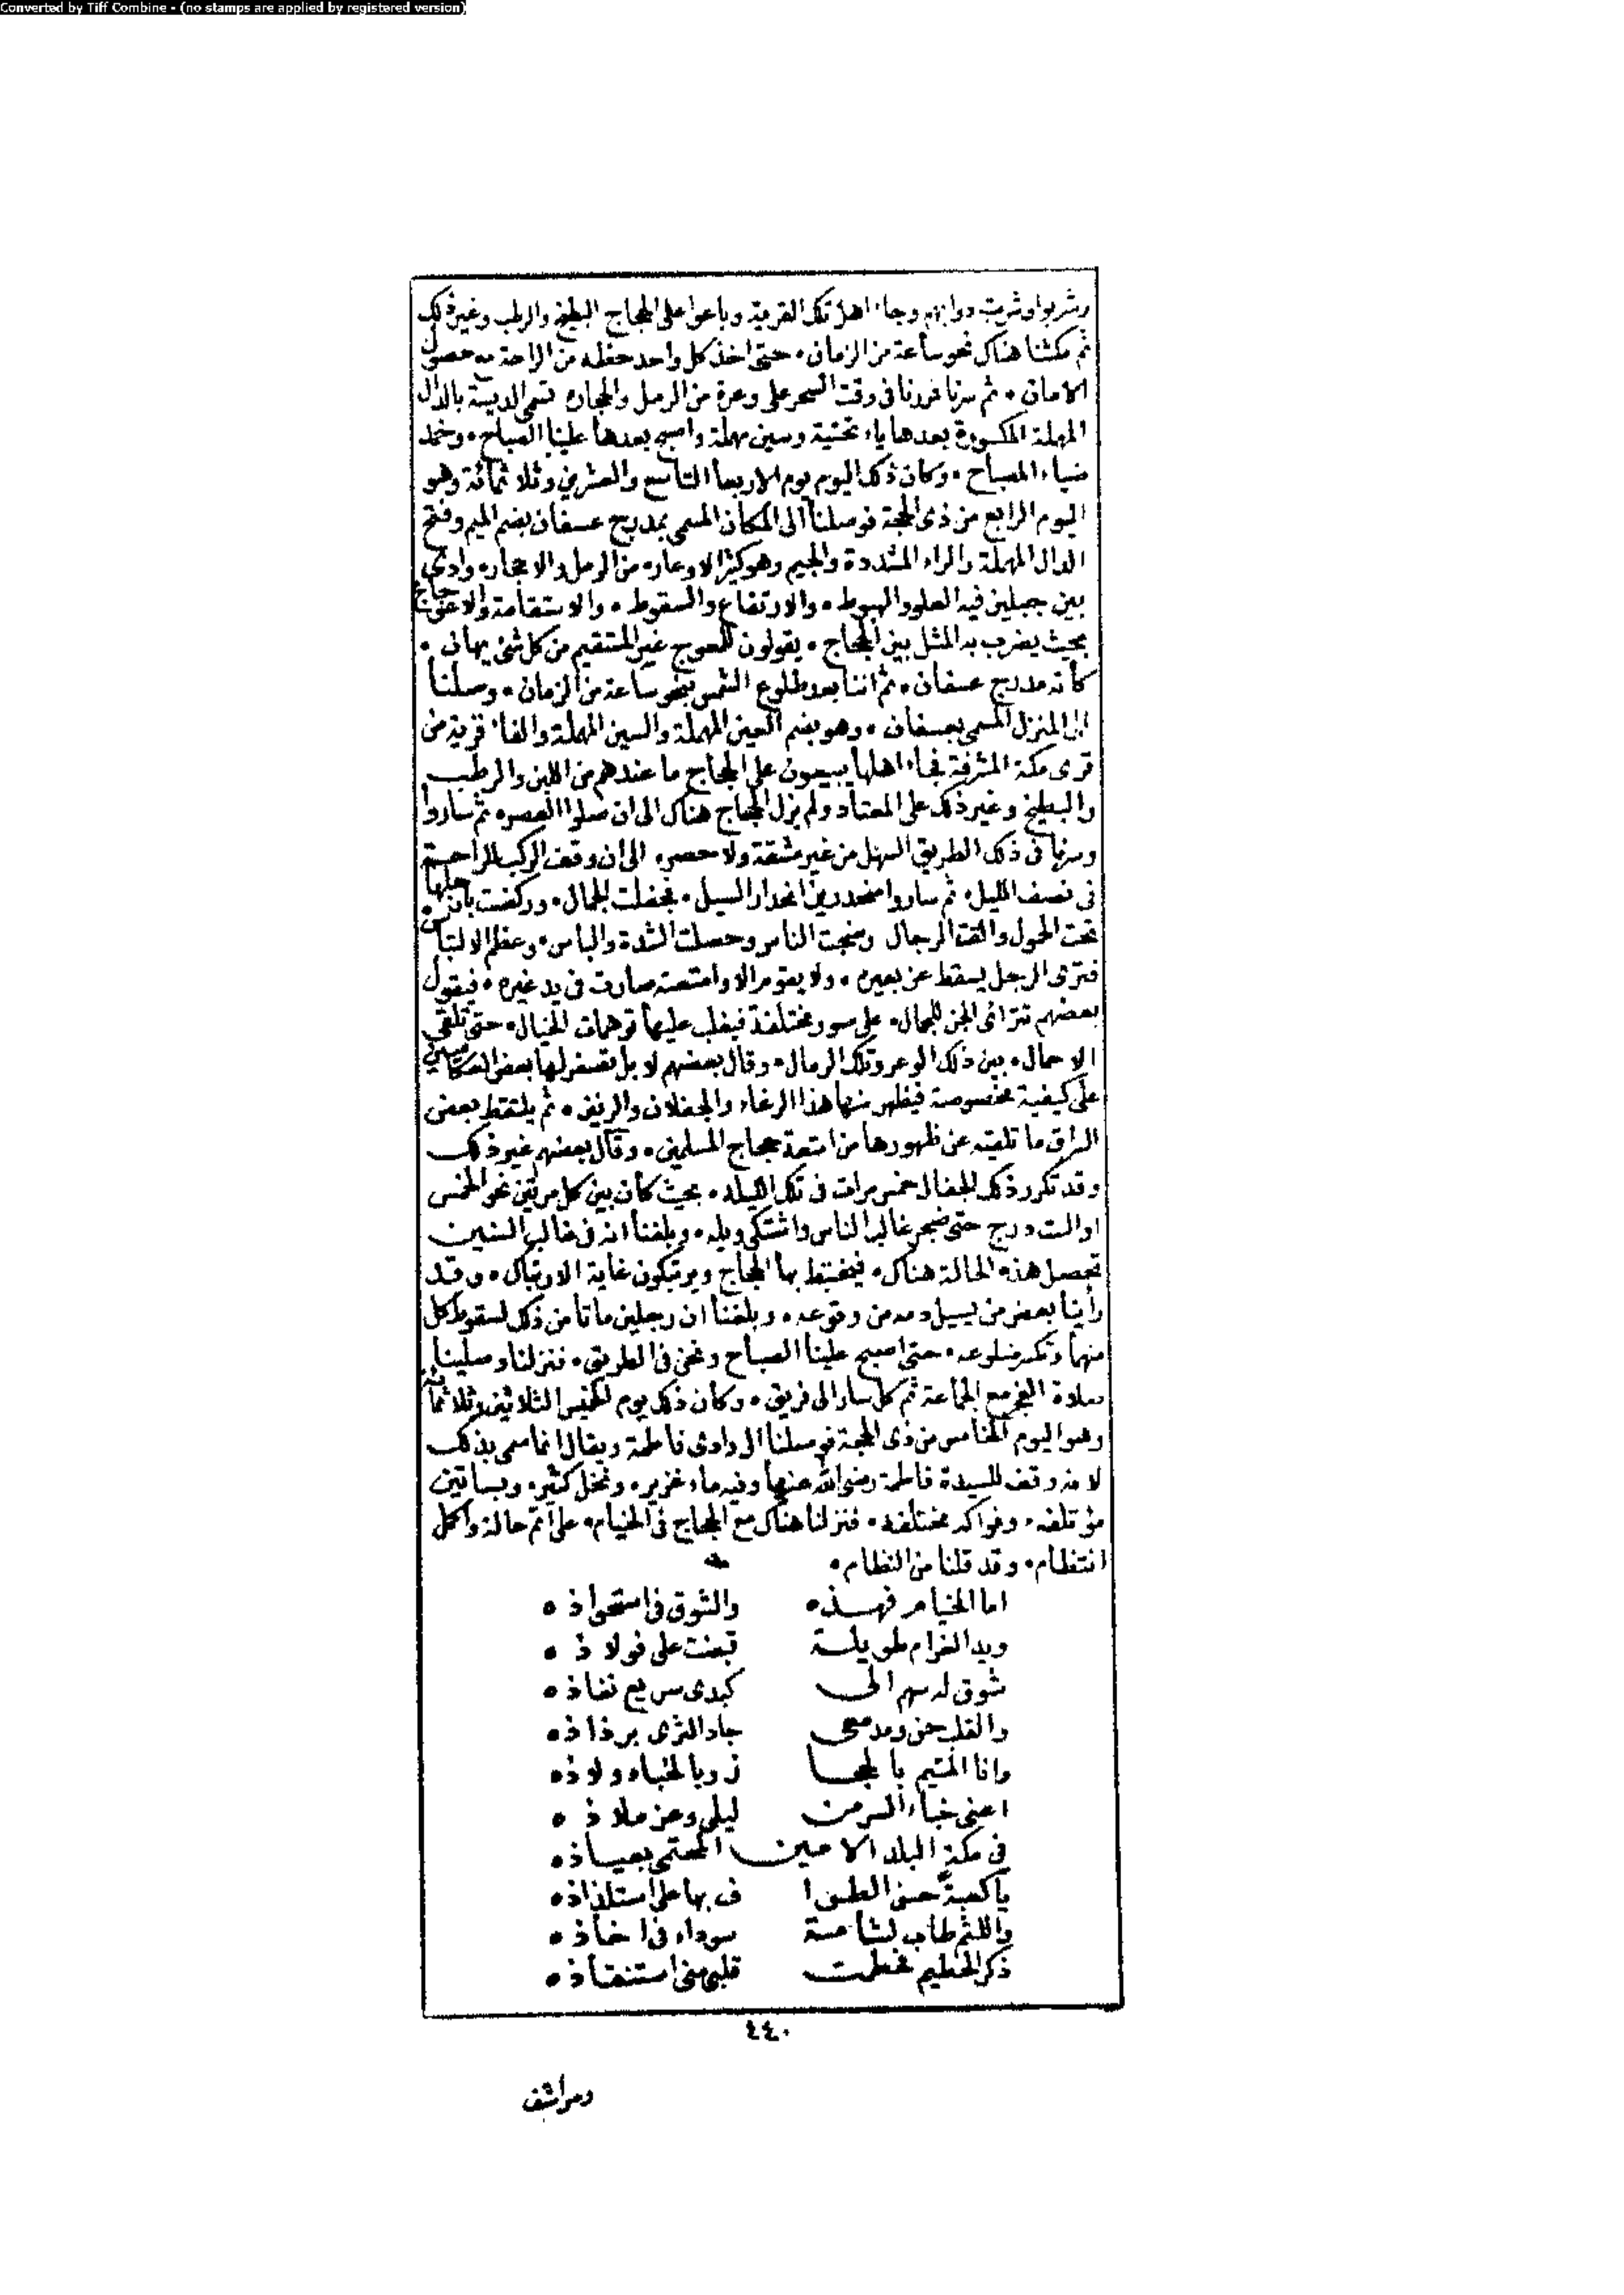 Converted by Tiff Combine - (no stamps are applied by registered version)
وشربوا وشربت دوابهم وجاء اهل تلك القرية وباعوا على الحجاج البطيخ والرطب وغير ذلك
ثم مكثنا هناك نحو ساعة من الزمان • حتى اخذ كل واحد حظه من الراحة مع حصول
الامان • ثم سرنا فمررنا فى وقت السحر على وعرة من الرمل والحجاره تسمى الديسة بالدال
المهملة المكسورة بعدها ياء تحتية وسين مهملة واصبح بعدها علينا الصباح • وخمد
ضياء المصباح • وكان ذلك اليوم يوم الاربعا التاسع والعشرين وثلاثمائة وهو
اليوم الرابع من ذى الحجة فوصلنا الى المكان المسمى بمدرج عسفان بضم الميم وفتح
الدال المهملة والراء المشددة والجيم وهو كثير الاوعار • من الرمل والاحجار • وادى
بين جبلين فيه العلو والهبوط • والارتفاع والسقوط • والاستقامة والاعوجاج
بحيث يضرب به المثل بين الحجاج • يقولون للمعوج غير المستقيم من كل شئ يهانى •
كأنه مدرج عسفان • ثم اننا بعد طلوع الشمس بنحو ساعة من الزمان • وصلنا
الى المنزل المسمى بعسفان • وهو بضم العين المهملة والسين المهملة والفاء قرية من
قرى مكة المشرفة فجاء اهلها يبيعون على الحجاج ما عندهم من اللبن والرطب
والبطيخ وغير ذلك على المعتاد ولم يزل الحجاج هناك الى ان صلوا العصر • ثم ساروا
وسرنا فى ذلك الطريق السهل من غير مشقة ولا حصر • الى ان وقف الركب للراحة
فى نصف الليل • ثم ساروا منحدرين انحدار السيل • فجفلت الجمال • وركضت باحمالها
تحت الحمول والقت الرجال وضجت الناس وحصلت الشدة والباس • وعظم الالتباس
فترى الرجل يسقط عن بعيره • ولا يقوم الا وامتعته صارت فى يد غيره • فيقول
بعضهم تترائى الجن للجمال • على صور مختلفة فيغلب عليها توهمات الخيال • حتى تلقى
الاحمال • بين ذلك الوعر وتلك الرمال • وقال بعضهم لا بل تصفر لها بعض المكاسين
على كيفية مخصوصة فيظهر منها هذا الرغاء والجفلان والرفض • ثم يلتقط بعض
السراق ما تلقيه عن ظهورها من امتعة حجاج المسلمين • وقال بعضهم غير ذلك
وقد تكرر ذلك الجفال خمس مرات فى تلك الليلة • بحيث كان بين كل مرتين نحو الخمس
او الست درج حتى ضجر غالب الناس واشتكى ويله • وبلغنا انه فى غالب السنين
تحصل هذه الحالة هناك • فيختبط بها الحجاج ويرتبكون غاية الارتباك • وقد
رأينا بعض من يسيل دمه من وقوعه • وبلغنا ان رجلين ماتا من ذلك لسقوط كل
منهما وتكسر ضلوعه • حتى اصبح علينا الصباح ونحن فى الطريق • فنزلنا وصلينا
صلاة الفجر مع الجماعة ثم كل سار الى فريق • وكان ذلك يوم الخميس الثلاثين وثلاثمائة
وهو اليوم الخامس من ذى الحجة فوصلنا الى وادى فاطمة ويقال انما سمى بذلك
لانه وقف للسيدة فاطمة رضى الله عنها وفيه ماء غزير • ونخل كثير • وبساتين
مؤتلفه • وفواكه مختلفه • فنزلنا هناك مع الحجاج فى الخيام • على اتم حالة واكمل
انتظام • وقد قلنا من النظام •
اما الخيام فهذه • والشوق فى استحواذه
ويد الغرام طويلة قبضت على فولاذه
شوق له سهم الى كبدى سريع نفاذه
والقلب حن ومدمعى جاد الثرى برذاذه
وانا المتيم بالحجا ز وبالخباء ولاذه
اعنى خباء السر من ليلى وعز ملاذه
فى مكة البلد الامين المحتمى بعياذه
يا كعبة حسن الطوا ف بها على استلذاذه
واللثم طاب لشامة سوداء فى اخاذه
ذكر الحطيم فحطمت قلبى منى استنقاذه
٤٤٠
ومراشف